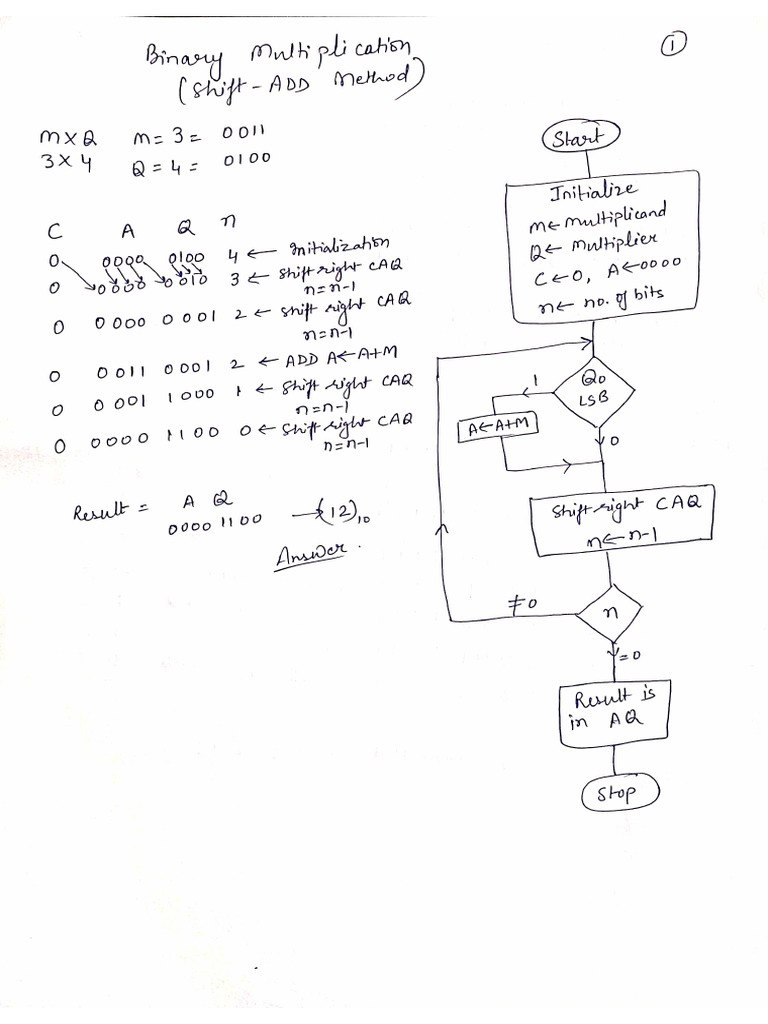 Binary Multiplication
(Shift-ADD Method)
1
M×Q M = 3 = 0011
3×4 Q = 4 = 0100
C A Q n
0 0000 0100 4 ← Initialization
0 0000 0010 3 ← Shift right CAQ
n=n-1
0 0000 0001 2 ← Shift right CAQ
n=n-1
0 0011 0001 2 ← ADD A←A+M
0 0001 1000 1 ← Shift right CAQ
n=n-1
0 0000 1100 0 ← Shift right CAQ
n=n-1
Result = A Q
0000 1100 → (12)10
Answer.
Start
Initialize
M←Multiplicand
Q← Multiplier
C←0, A←0000
n← no. of bits
Q0
LSB
1
A←A+M
0
Shift right CAQ
n←n-1
≠0
n
=0
Result is
in AQ
Stop